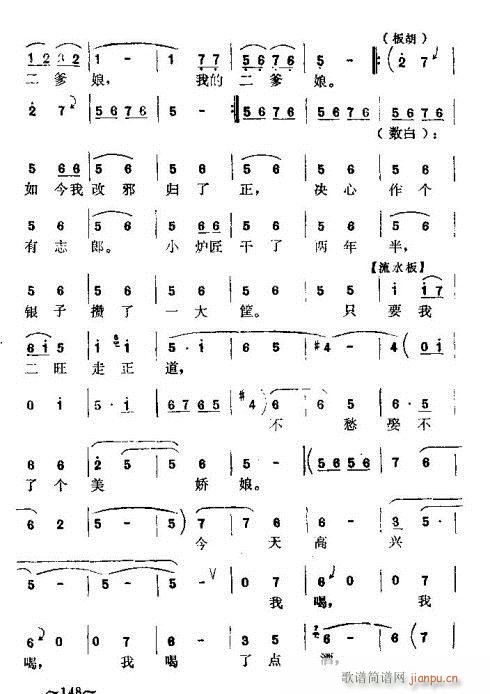 (板胡)
1 2 3 2 | 1 - | 1 7 7 | 5 6 7 6 | 5 - :| (2 7
二爹娘， 我的二爹娘。
2 7 | 5 6 7 6 | 5 - :| 5 6 7 6 | 5 6 7 6 | 5 6 7 6
(数白)：
5 6 6 | 5 6 | 5 6 | 5 5 | 5 6 | 5 6
如今我改邪归了正， 决心作个
5 6 | 5 - | 5 6 | 5 6 | 5 6 | 5 -
有志郎。 小炉匠干了两年半，
【流水板】
5 6 | 5 6 | 5 6 | 5 - | 5 5 | i i 7
银子攒了一大筐。 只要我
6 i 5 | i i | 5 · i | 5 - | #4 - | 4 (0 i
二旺走正道，
0 i | 5 · i | 6 7 6 5 | #4 6) | 6 5 | 6 · 5
不愁娶不
6 6 | 2 5 | 5 6 | 5 - | (5 6 5 6 | 7 6
了个美娇娘。
6 2 | 5 - | 5 -) | 7 7 | 6 - | 3 5
今天高兴
5 - | 5 - | 5 - | 0 7 | 6 0 | 0 7
我喝， 我
6 0 | 0 7 | 6 7 | 6 7 | 6 - | 0 7
喝， 我喝了点酒，
～148～
歌谱简谱网
jianpu.cn